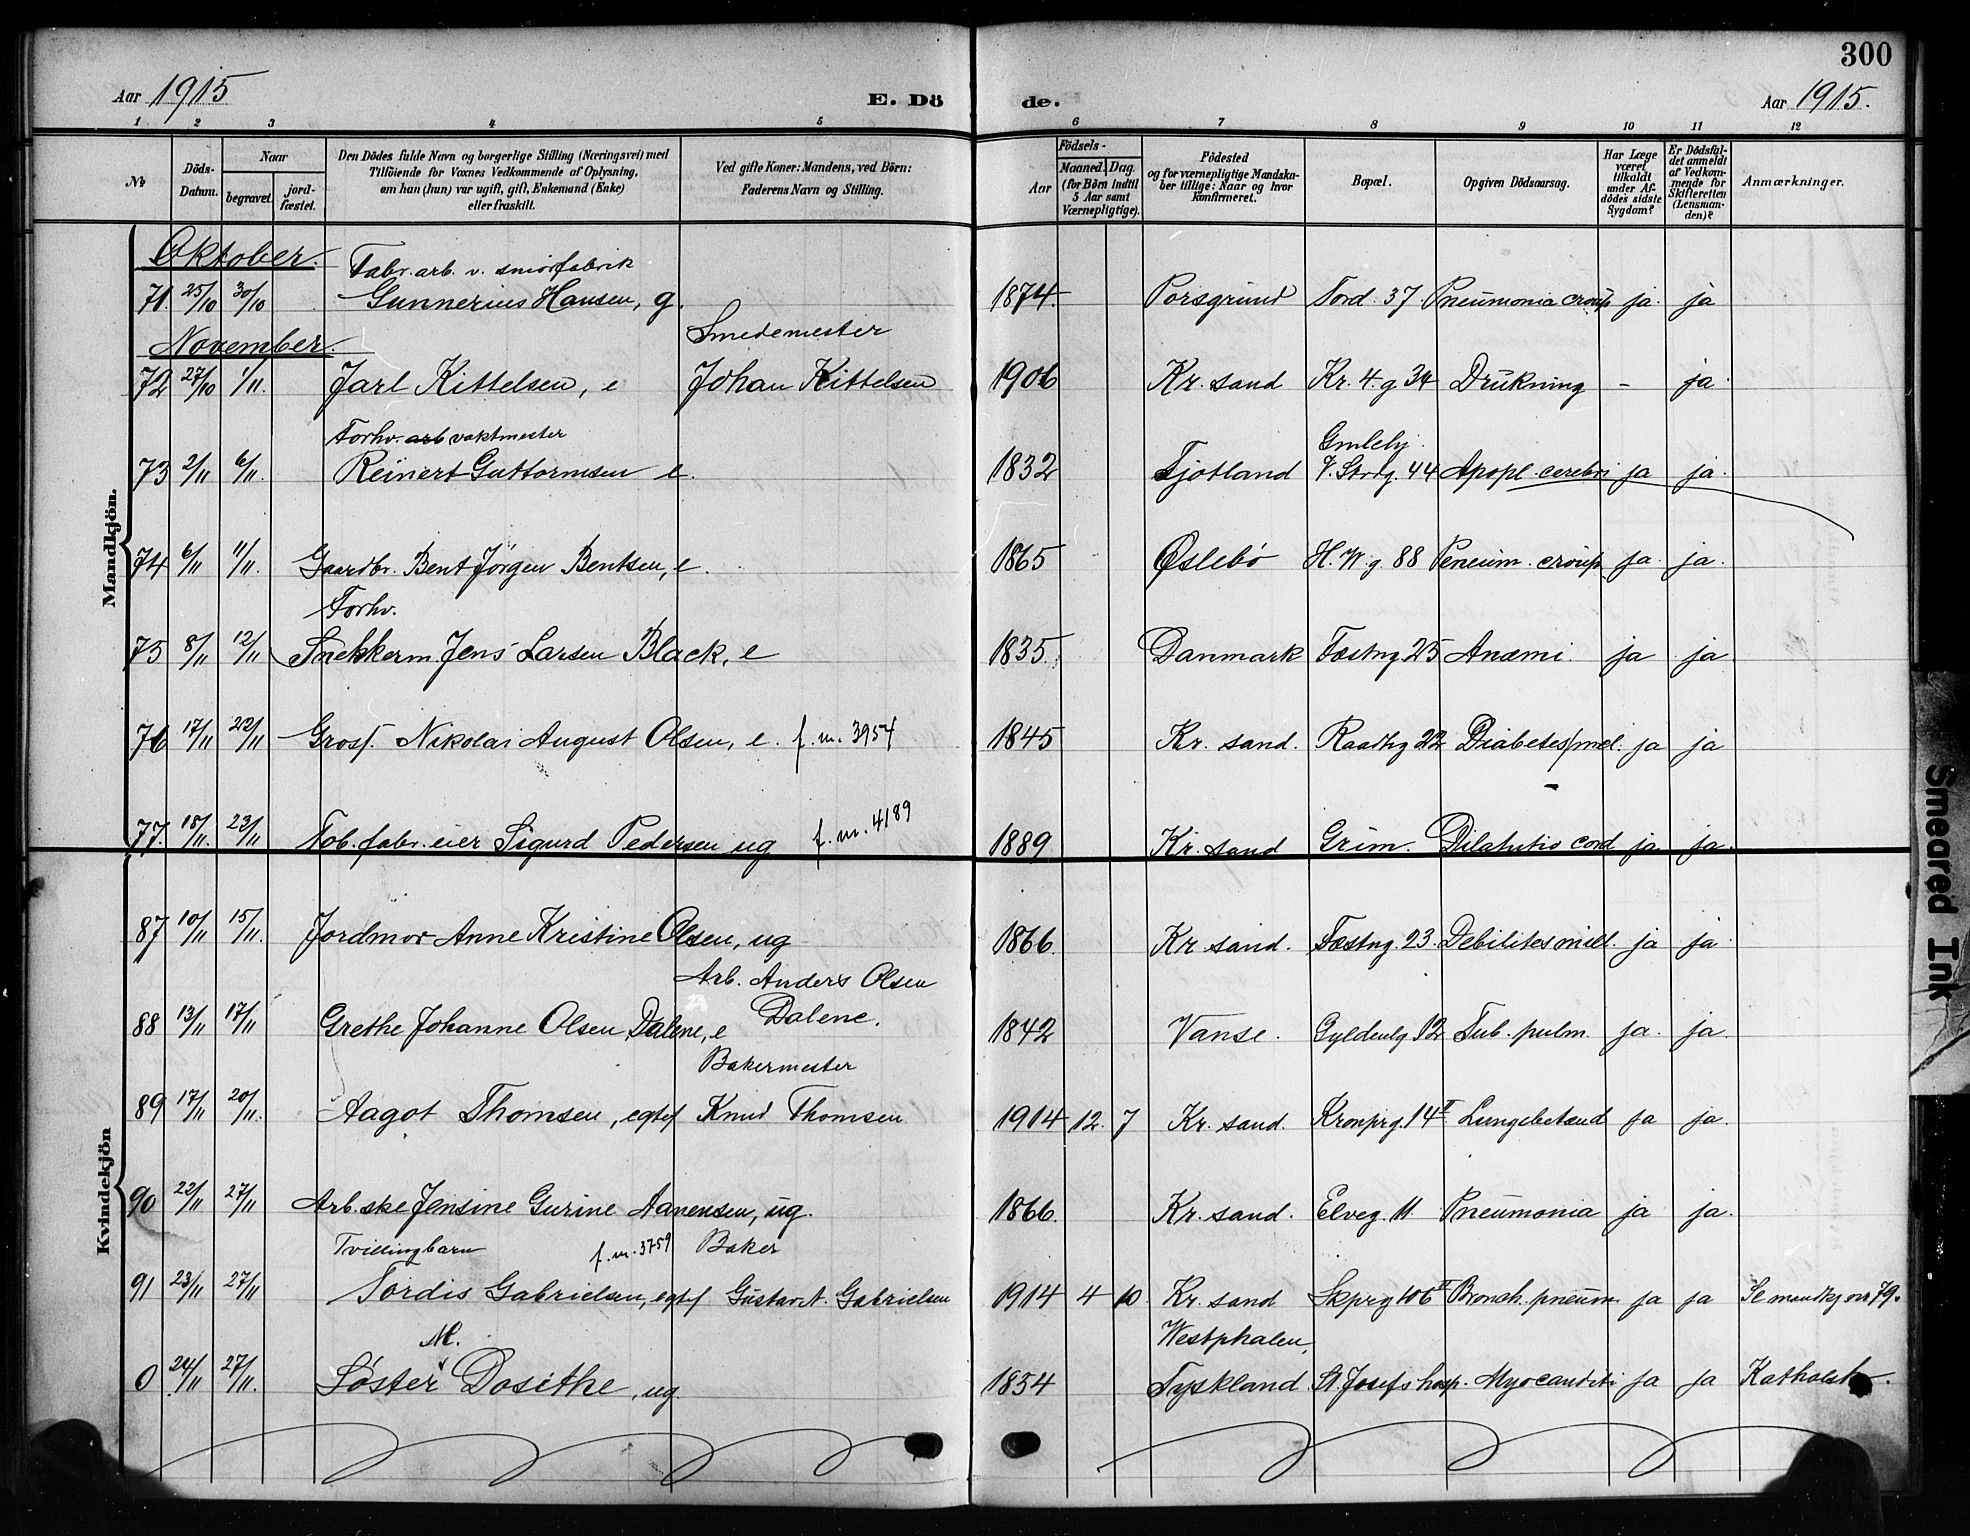 300
Aar 1915
E. Dö
de.
Aar 1915.
1 2 3 4 5 6 7 8 9 10 11 12
No
Döds-Datum.
Naar
begravet.
jord-fæstet.
Den Dödes fulde Navn og borgerlige Stilling (Næringsvei) med
Tilföiende for Voxnes Vedkommende af Oplysning,
om han (hun) var ugift, gift, Enkemand (Enke)
eller fraskilt.
Ved gifte Koner: Mandens, ved Börn:
Faderens Navn og Stilling.
Födsels-
Aar
Maaned. Dag.
(for Börn indtil
5 Aar samt
Værnepligtige).
Födested
og for værnepligtige Mandska-
ber tillige: Naar og hvor
konfirmeret.
Bopæl.
Opgiven Dödsaarsag.
Har Læge
været
tilkaldt
under Af-
dödes sidste
Sygdom?
Er Dödsfal-
det anmeldt
af Vedkom-
mende for
Skifteretten
(Lensman-
den)?
Anmærkninger.
Mandkjön.
Oktober.
Fabr. arb. v. smörfabrik
71. 25/10 30/10 Gunnerius Hansen, g. 1874. Porsgrund Tord. 37 Pneumonia croup ja. ja
November.
Smedemester
72 27/10 1/11. Jarl Kittelsen, e Johan Kittelsen 1906 Kr. sand Kr. 4. g 34 Drukning - ja.
Forhv. arb vaktmester
Gmleby.
73 2/11 6/11. Reinert Guttormsen e. 1832 Fjotland V. Strdg. 44 Apopl. cerebri ja ja.
74 6/11 11/11. Gaardbr. Bent Jörgen Bentsen, e. 1865 Øslebö H. W. g. 88 Peneum. croup. ja. ja.
Forhv.
75 8/11 12/11 Snekkerm. Jens Larsen Black, e 1835. Danmark Fæstng. 25 Anæmi. ja ja.
76 17/11 22/11 Gross. Nikolai August Olsen, e. f. m. 3954 1845 Kr. sand. Raadhg 22 Diabetes mel. ja ja
77. 18/11. 23/11 Tob. fabr. eier Sigurd Pedersen ug f. m. 4189 1889 Kr. sand Grim. Dilatatio cord ja ja.
Kvindekjön
87 10/11 15/11. Jordmor Anne Kristine Olsen, ug 1866. Kr. sand. Fæstng. 23. Debilites ja ja.
Arb. Anders Olsen
88 13/11 17/11 Grethe Johanne Olsen Dalene, e Dalene. 1842 Vanse. Gyldenlg 12 Tub. pulm. ja. ja.
Bakermester
89 17/11 20/11. Aagot Thomsen, egtef Knud Thomsen 1914 12. 7 Kr. sand. Kronprg. 14 II Lungebetænd ja ja.
90 22/11 27/11 Arb.ske Jensine Gurine Aanensen, ug. 1866. Kr. sand. Elveg. 11 Pneumonia ja ja.
Tvillingbarn f. m. 3759 Baker
91 23/11 27/11 Tordis Gabrielsen, egtef. Gustav A. Gabrielsen 1914 4 10 Kr. sand Skprg 106 II Bronch. pneum ja ja Se mandkj nr 79.
M. Westphalen,
0 24/11 27/11. Söster Dosithe, ug 1854 Tyskland St Josefs hosp. Myocarditi ja ja Katholsk.
Smeared Ink